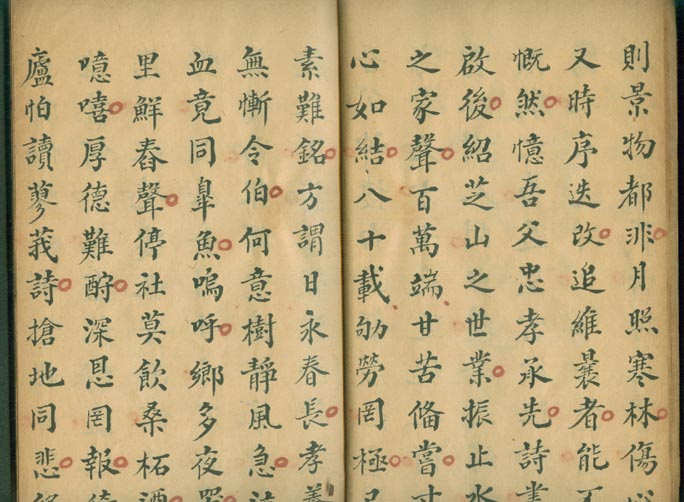 則景物都非月照寒林傷
又時序迭改追維曩者能不
慨然憶吾父忠孝承先詩書
啟後紹芝山之世業振止水
之家聲百萬端甘苦俻嘗寸
心如結八十載劬勞罔極
素難銘方謂日永春長孝養
無慚令伯何意樹靜風急
血竟同臯魚嗚呼鄉多夜
里鮮舂聲停社莫飲桑柘酒
噫嘻厚德難酧深恩罔報
廬怕讀蓼莪詩搶地同悲